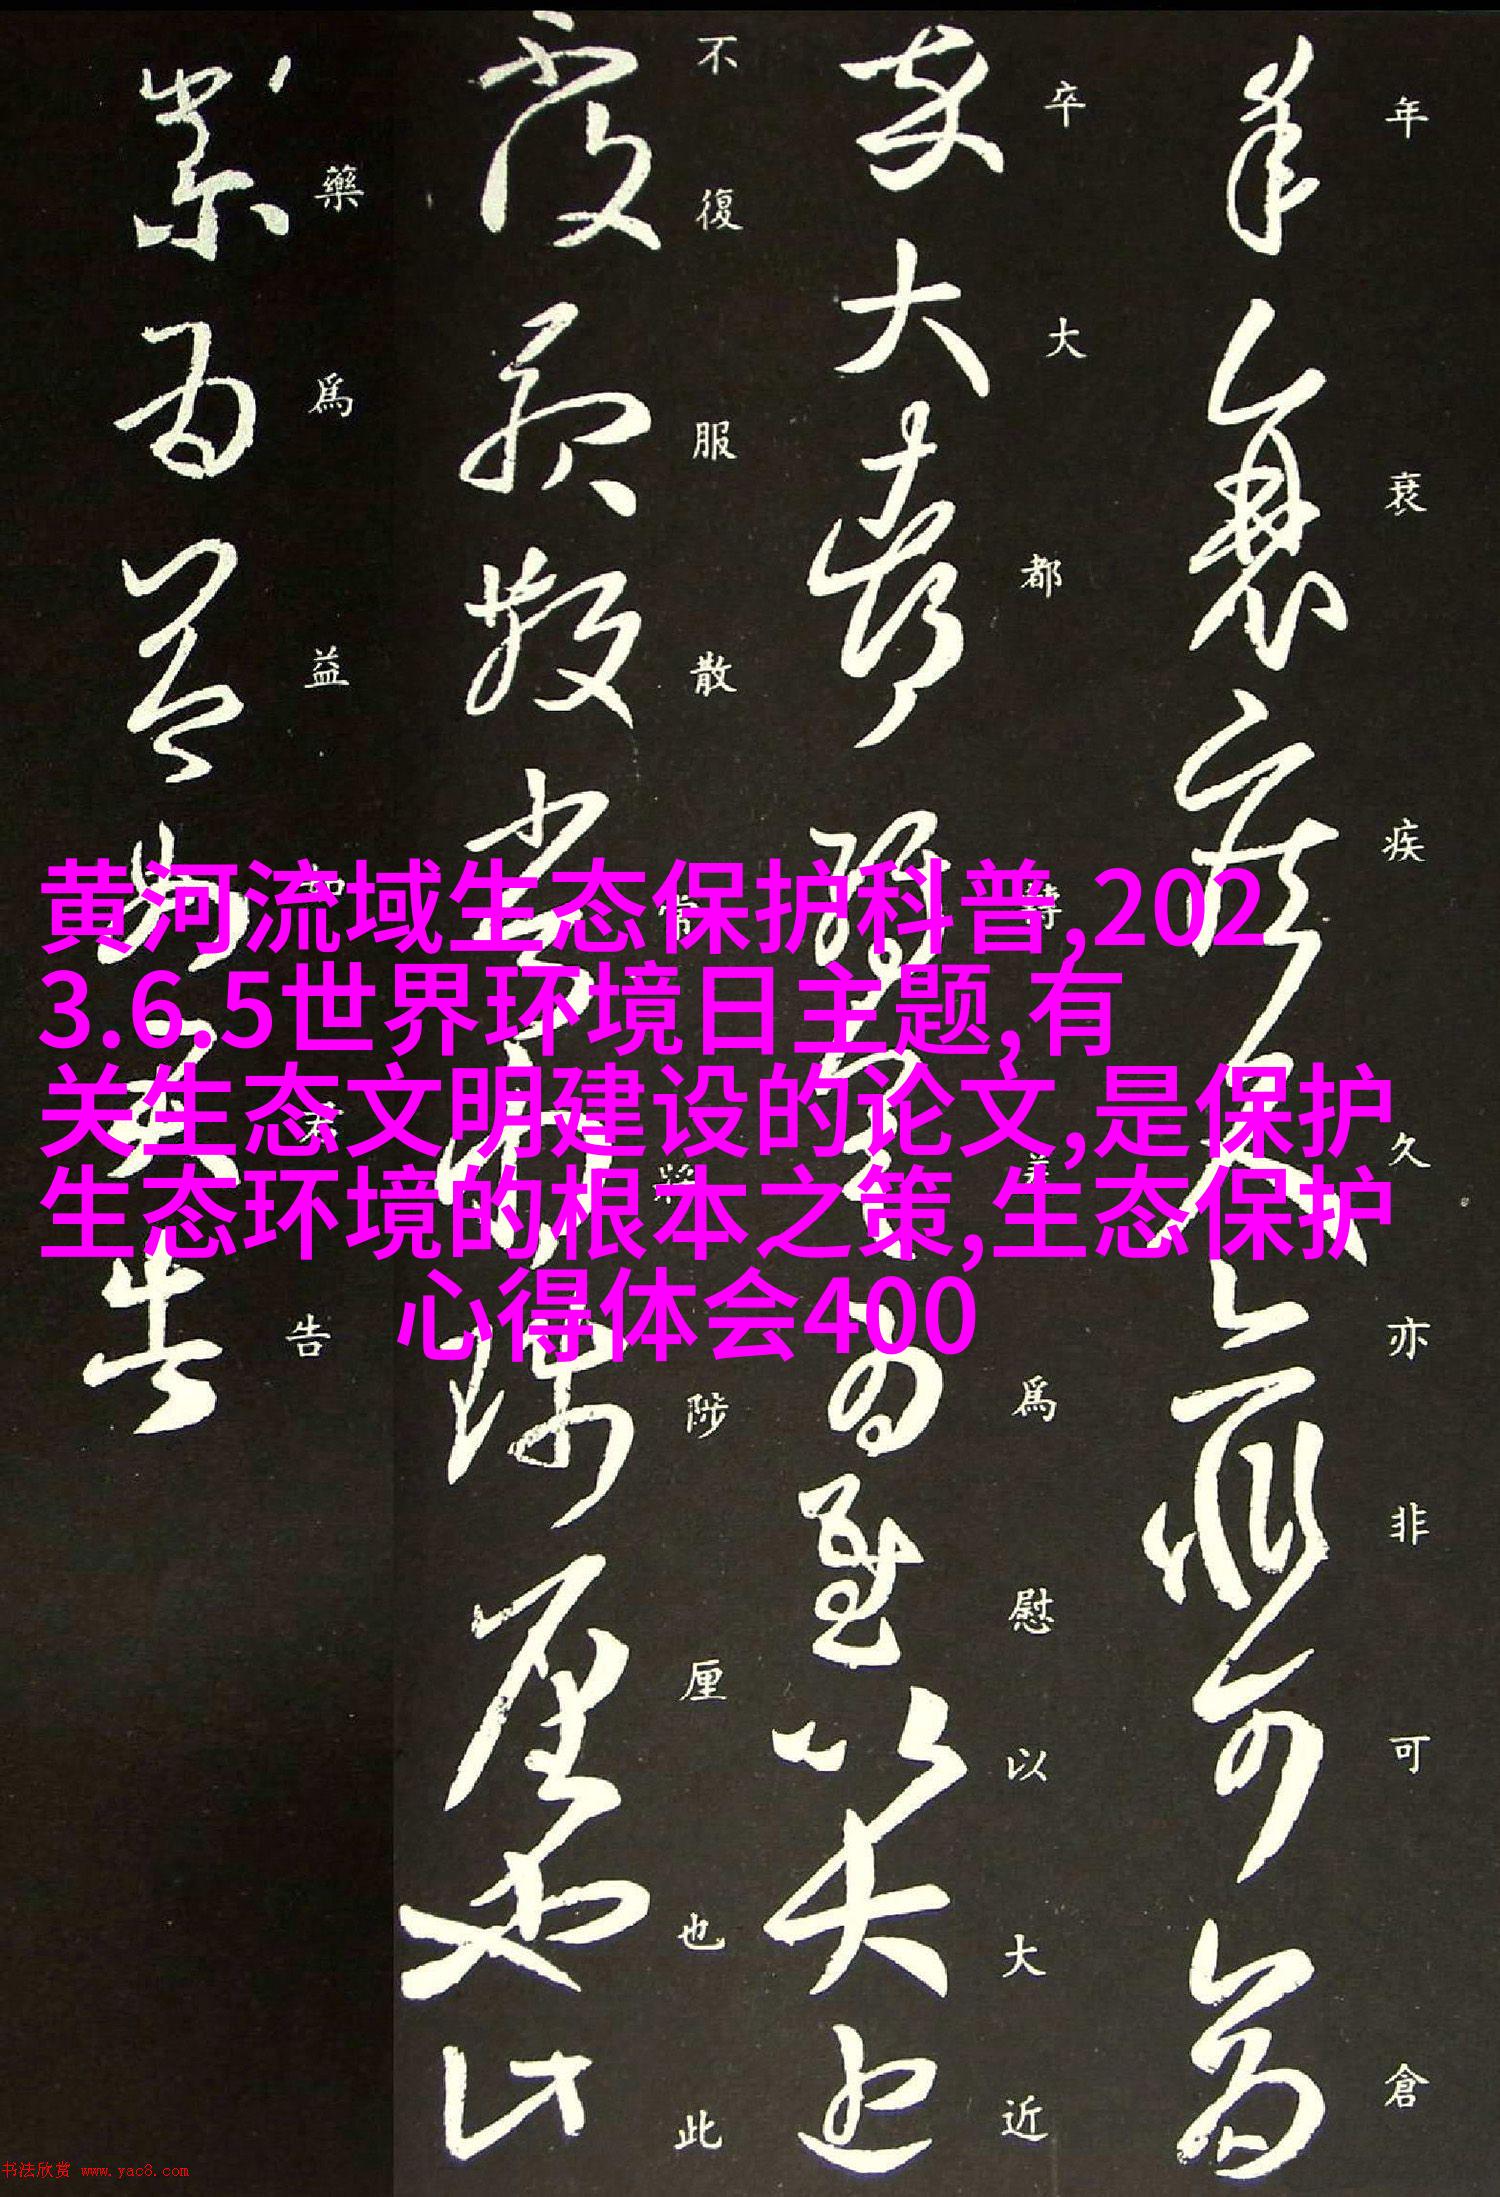 年衰疾久亦非可倉
卒大都轉美為慰以大近
不復服散常將陟厘也此
藥為益如君告
黄河流域生态保护科普,202
3.6.5世界环境日主题,有
关生态文明建设的论文,是保护
生态环境的根本之策,生态保护
心得体会400
书法欣赏 www.yac8.com